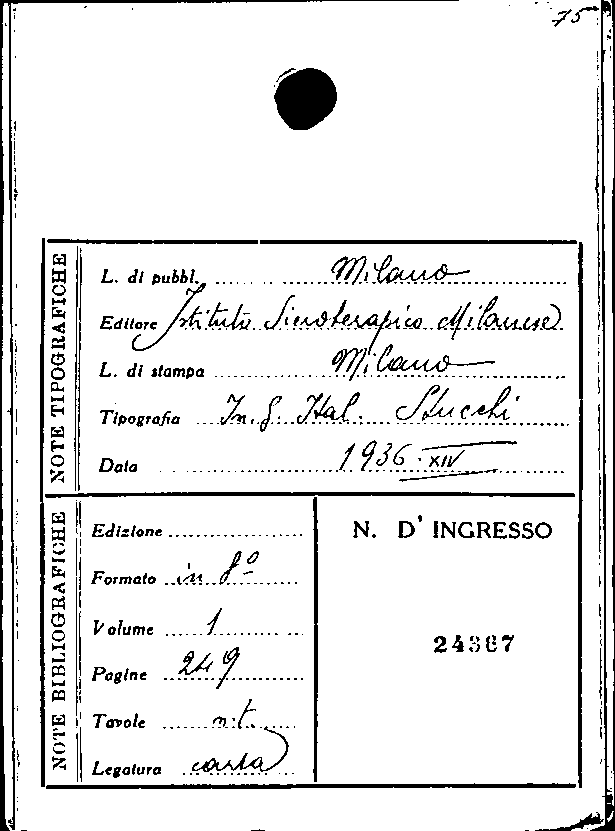 75
NOTE TIPOGRAFICHE
L. di pubbl. Milano
Editore Istituto Sieroterapico Milanese
L. di stampa Milano
Tipografia In.g. Ital. Stucchi
Data 1936-XIV
NOTE BIBLIOGRAFICHE
Edizione
Formato in 8º
Volume 1
Pagine 249
Tavole n.t.
Legatura carta
N. D' INGRESSO
24367